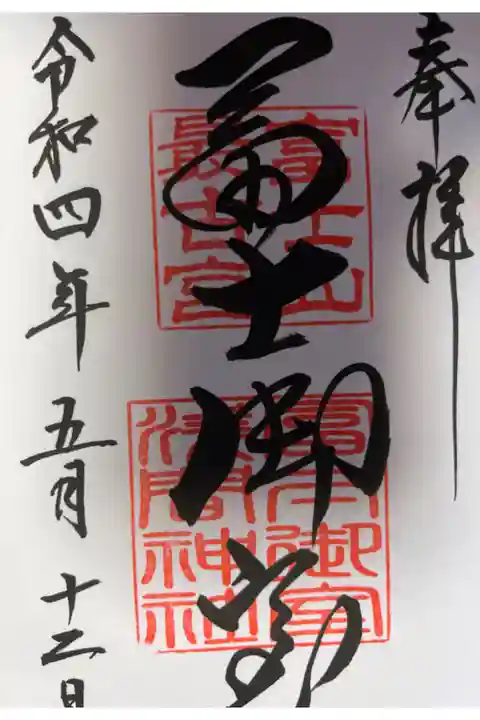 奉拝
冨士御室
富士山
最古宮
冨士御室
浅間神社
令和四年五月十二日